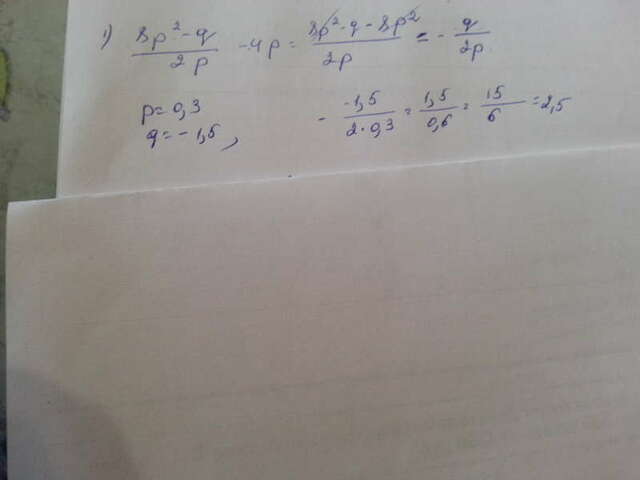 1) (8p²-q)/(2p) - 4p = (8p²-q-8p²)/(2p) = -q/(2p)
p=0,3 -(-1,5)/(2·0,3) = 1,5/0,6 = 15/6 = 2,5
q=-1,5,